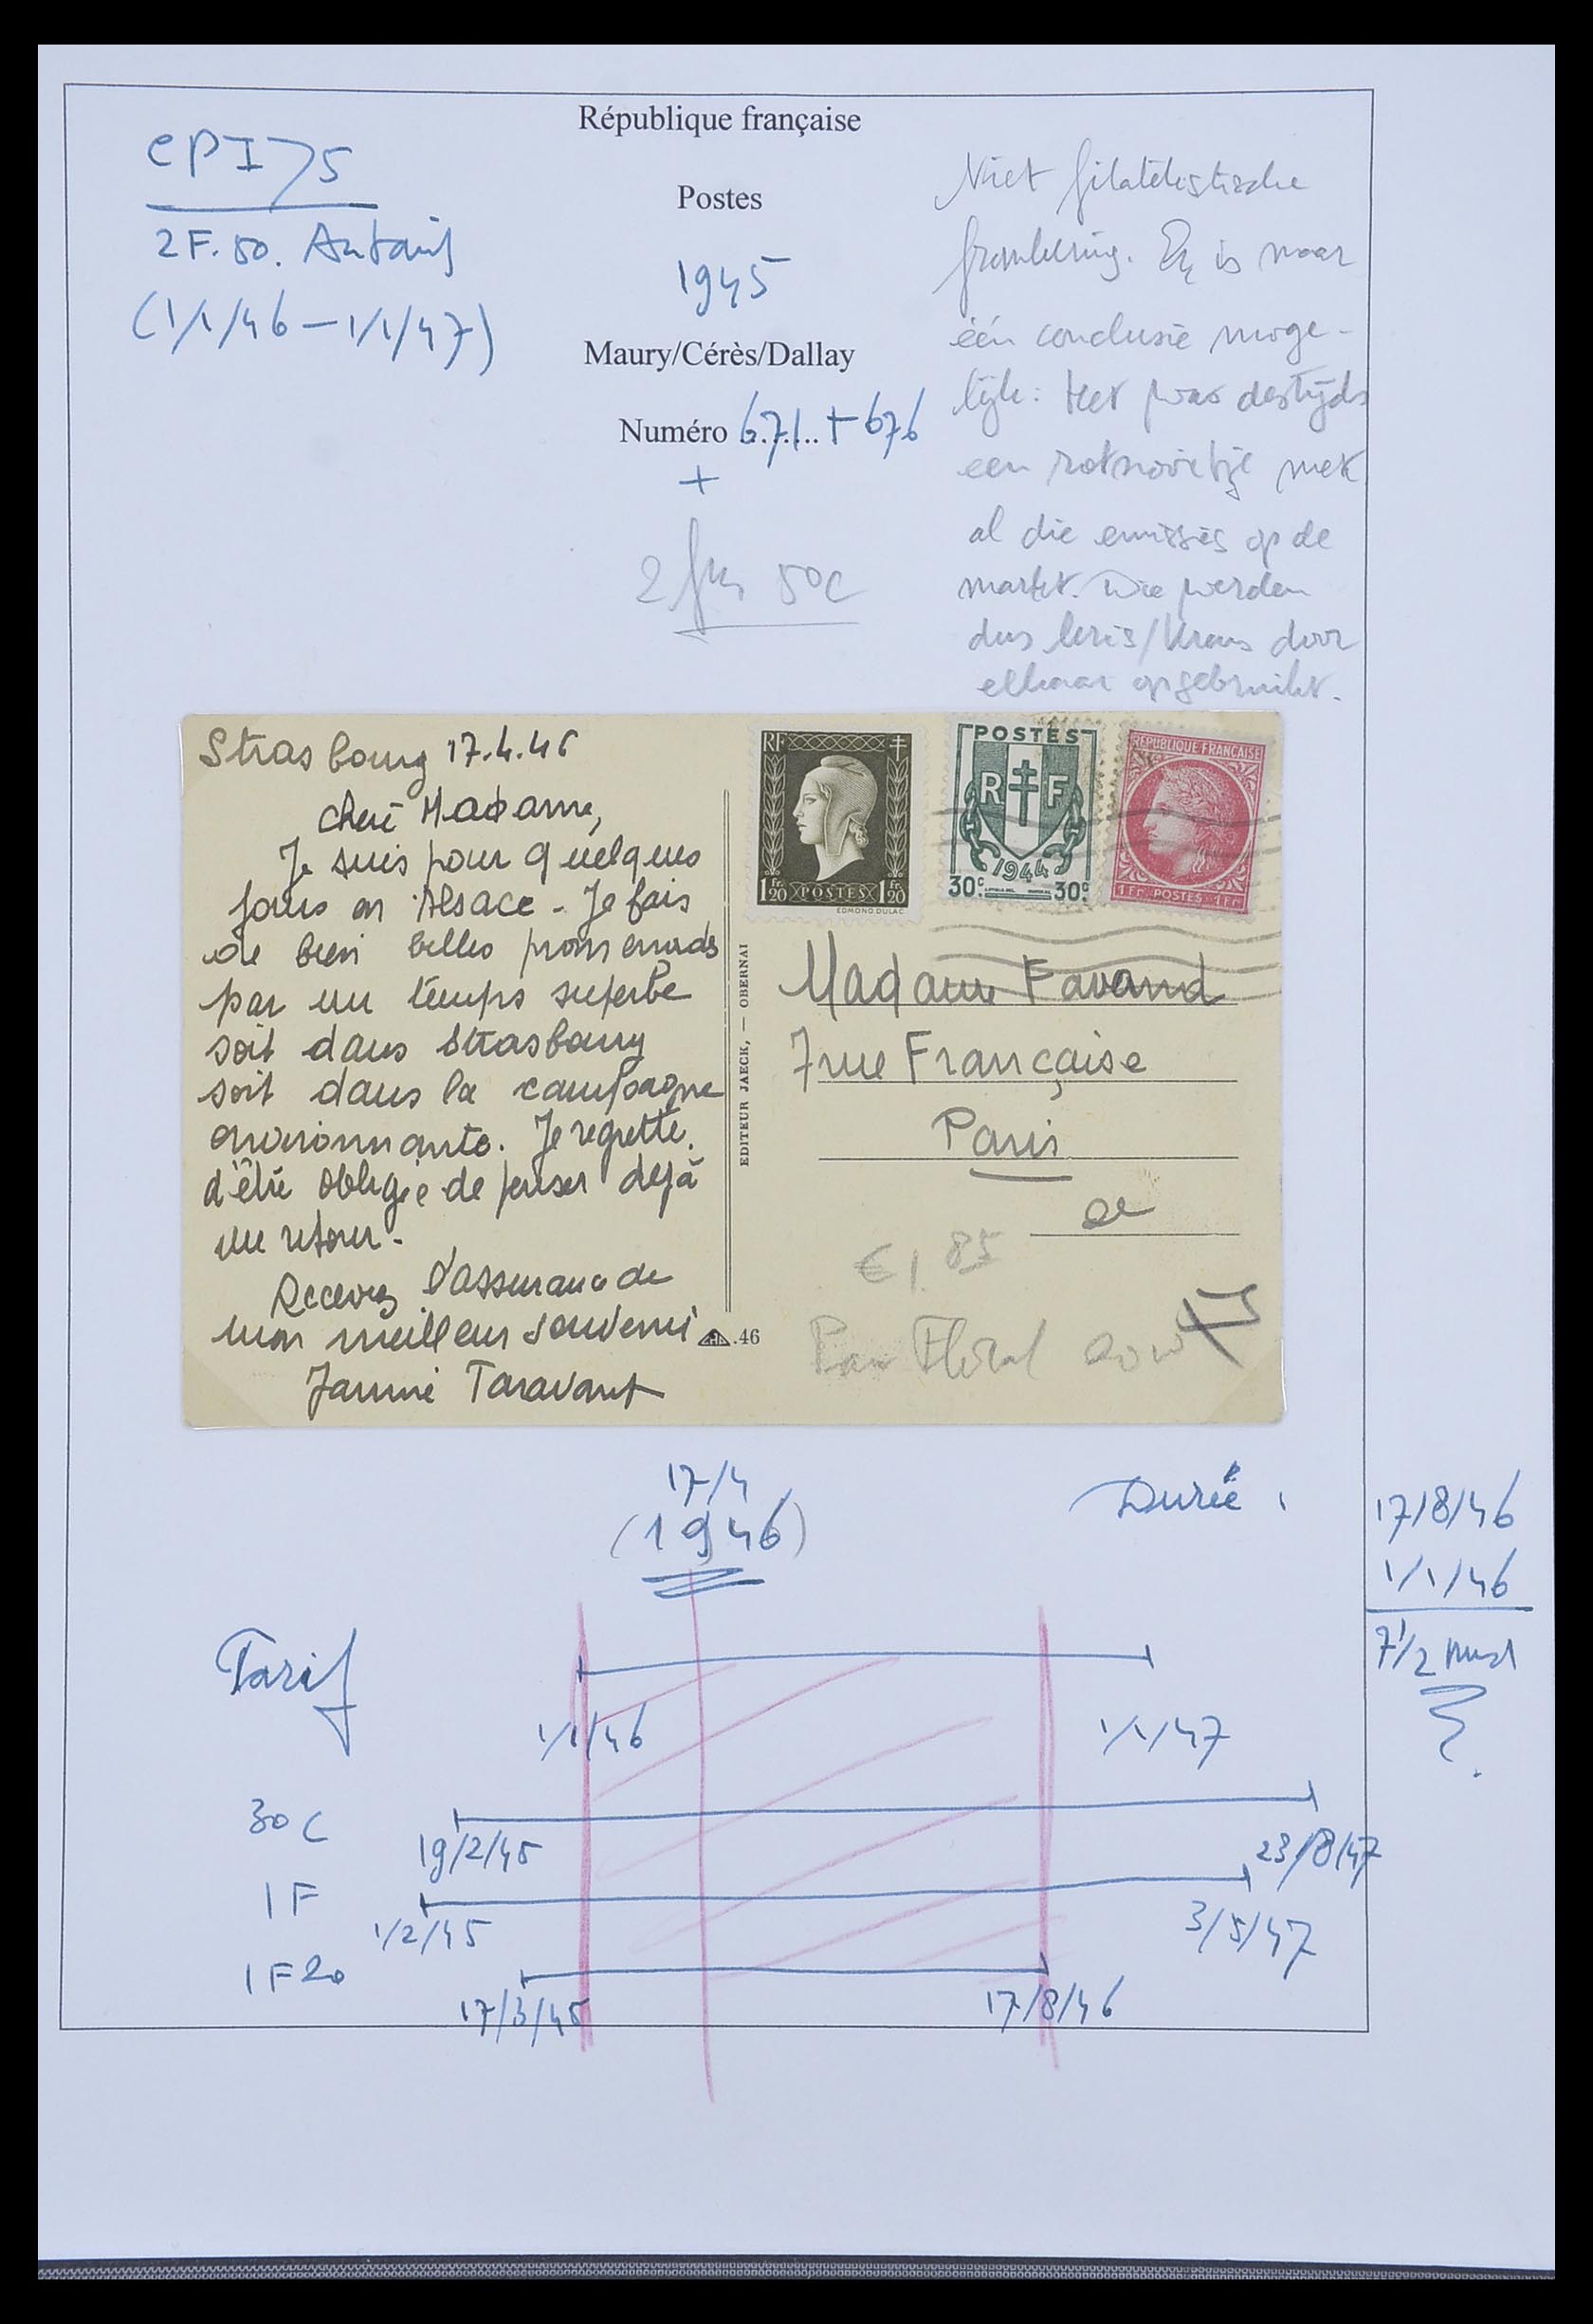 République française
Postes
1945
Maury/Cérès/Dallay
Numéro 671 + 676
+
2 frs 50c
CPI75
2F.50.
(1/1/46 – 1/1/47)
Niet filatelistische
frankering. Er is maar
één conclusie moge-
lijk: Het was destijds
een zootje met
al die emissies op de
markt. Die werden
dus kris/kras door
elkaar opgebruikt.
Strasbourg 17.4.46
Chère Madame,
Je suis pour quelques
jours en Alsace - Je fais
de bien belles promenades
par un temps superbe
soit dans Strasbourg
soit dans la campagne
environnante. Je regrette
d'être obligée de penser déjà
au retour.
Recevez l'assurance de
mon meilleur souvenir
Taravant
EDITEUR JAECK, — OBERNAI
.46
RF
1Fr.20 POSTES 1Fr.20
EDMOND DULAC
POSTES
R F
1944
30c 30c
REPUBLIQUE FRANÇAISE
1Fr. POSTES 1Fr
Madame Favand
7 rue Française
Paris
2e
€ 1.85
17/4
(1946)
Durée :
17/8/46
1/1/46
7 1/2 mnd
Tarif
1/1/46
1/1/47
30 C
19/2/45
23/8/47
1F
1/2/45
3/5/47
1F20
17/3/45
17/8/46